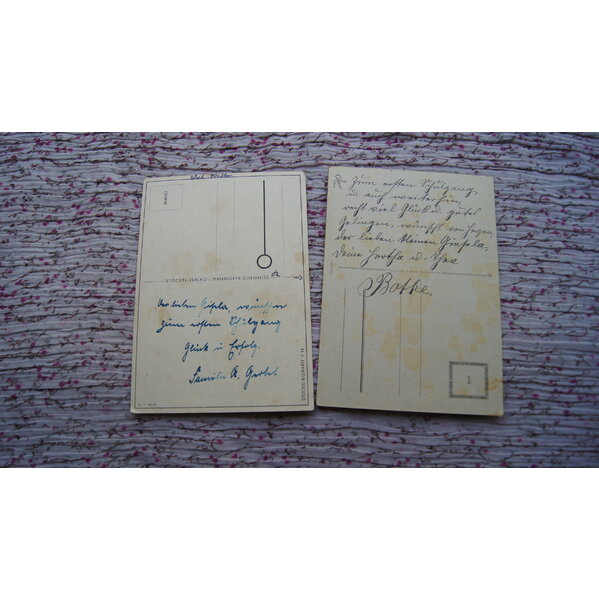 STÖCKEL-VERLAG · HANNOVER-CHEMNITZ
Der lieben Gisela, wünschen
zum ersten Schulgang
Glück u. Erfolg.
Familie A. Gerbet
Zum ersten Schulgang,
u. auch weiterhin,
recht viel Glück u. gutes
Gelingen, wünscht von Herzen,
der lieben kleinen Gisela,
Deine Hertha u. Thea
Bothe.